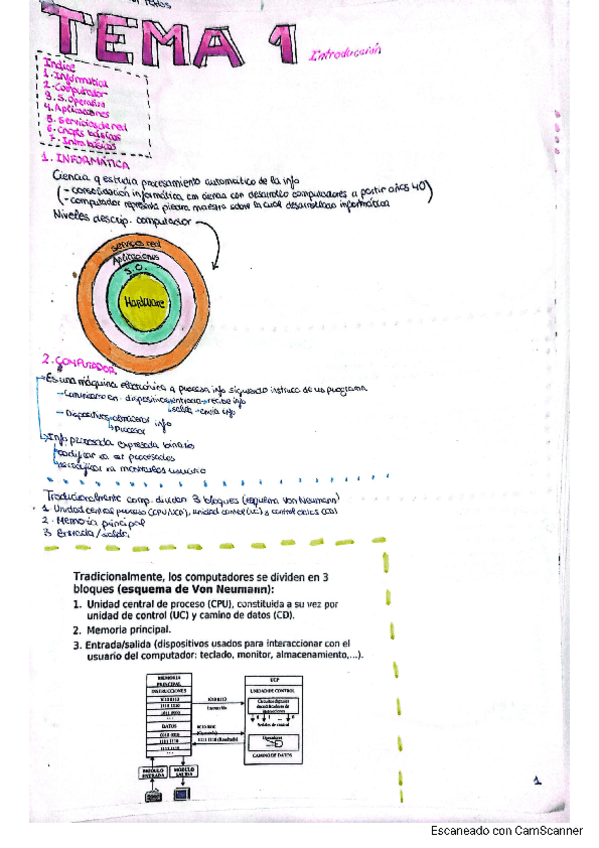 TEMA 1 Introducción
Indice
1. Informatica
2. Computador
3. S. Operativo
4. Aplicaciones
5. Servicios de red
6. Cncpts básicos
7. Intro básicos
1. INFORMÁTICA
Ciencia q estudia procesamiento automatico de la info
- consolidación informática cm ciencia con desarrollo computadores a partir años 40
- computador representa piedra maestra sobre la cual desarrollado informática
Niveles descrip. computador
Servicios red
Aplicaciones
S.O.
Hardware
2. COMPUTADOR
Es una máquina electrónica q procesa info siguiendo instrucc de un programa
entrada → recibe info
salida → envia info
- Dispositivos almacenar info
procesar
Info procesada expresada binario
codificar xa ser procesados
Tradicionalmente comp. dividen 3 bloques (esquema Von Neumann)
1. Unidad central proceso (CPU/UCP), unidad control (UC) y control datos (CD)
2. Memoria principal
3. Entrada/salida
Tradicionalmente, los computadores se dividen en 3
bloques (esquema de Von Neumann):
1. Unidad central de proceso (CPU), constituida a su vez por
unidad de control (UC) y camino de datos (CD).
2. Memoria principal.
3. Entrada/salida (dispositivos usados para interaccionar con el
usuario del computador: teclado, monitor, almacenamiento,...).
MEMORIA
PRINCIPAL
INSTRUCCIONES
DATOS
UCP
UNIDAD DE CONTROL
Señales de control
CAMINO DE DATOS
MÓDULO
ENTRADA
MÓDULO
SALIDA
1
Escaneado con CamScanner